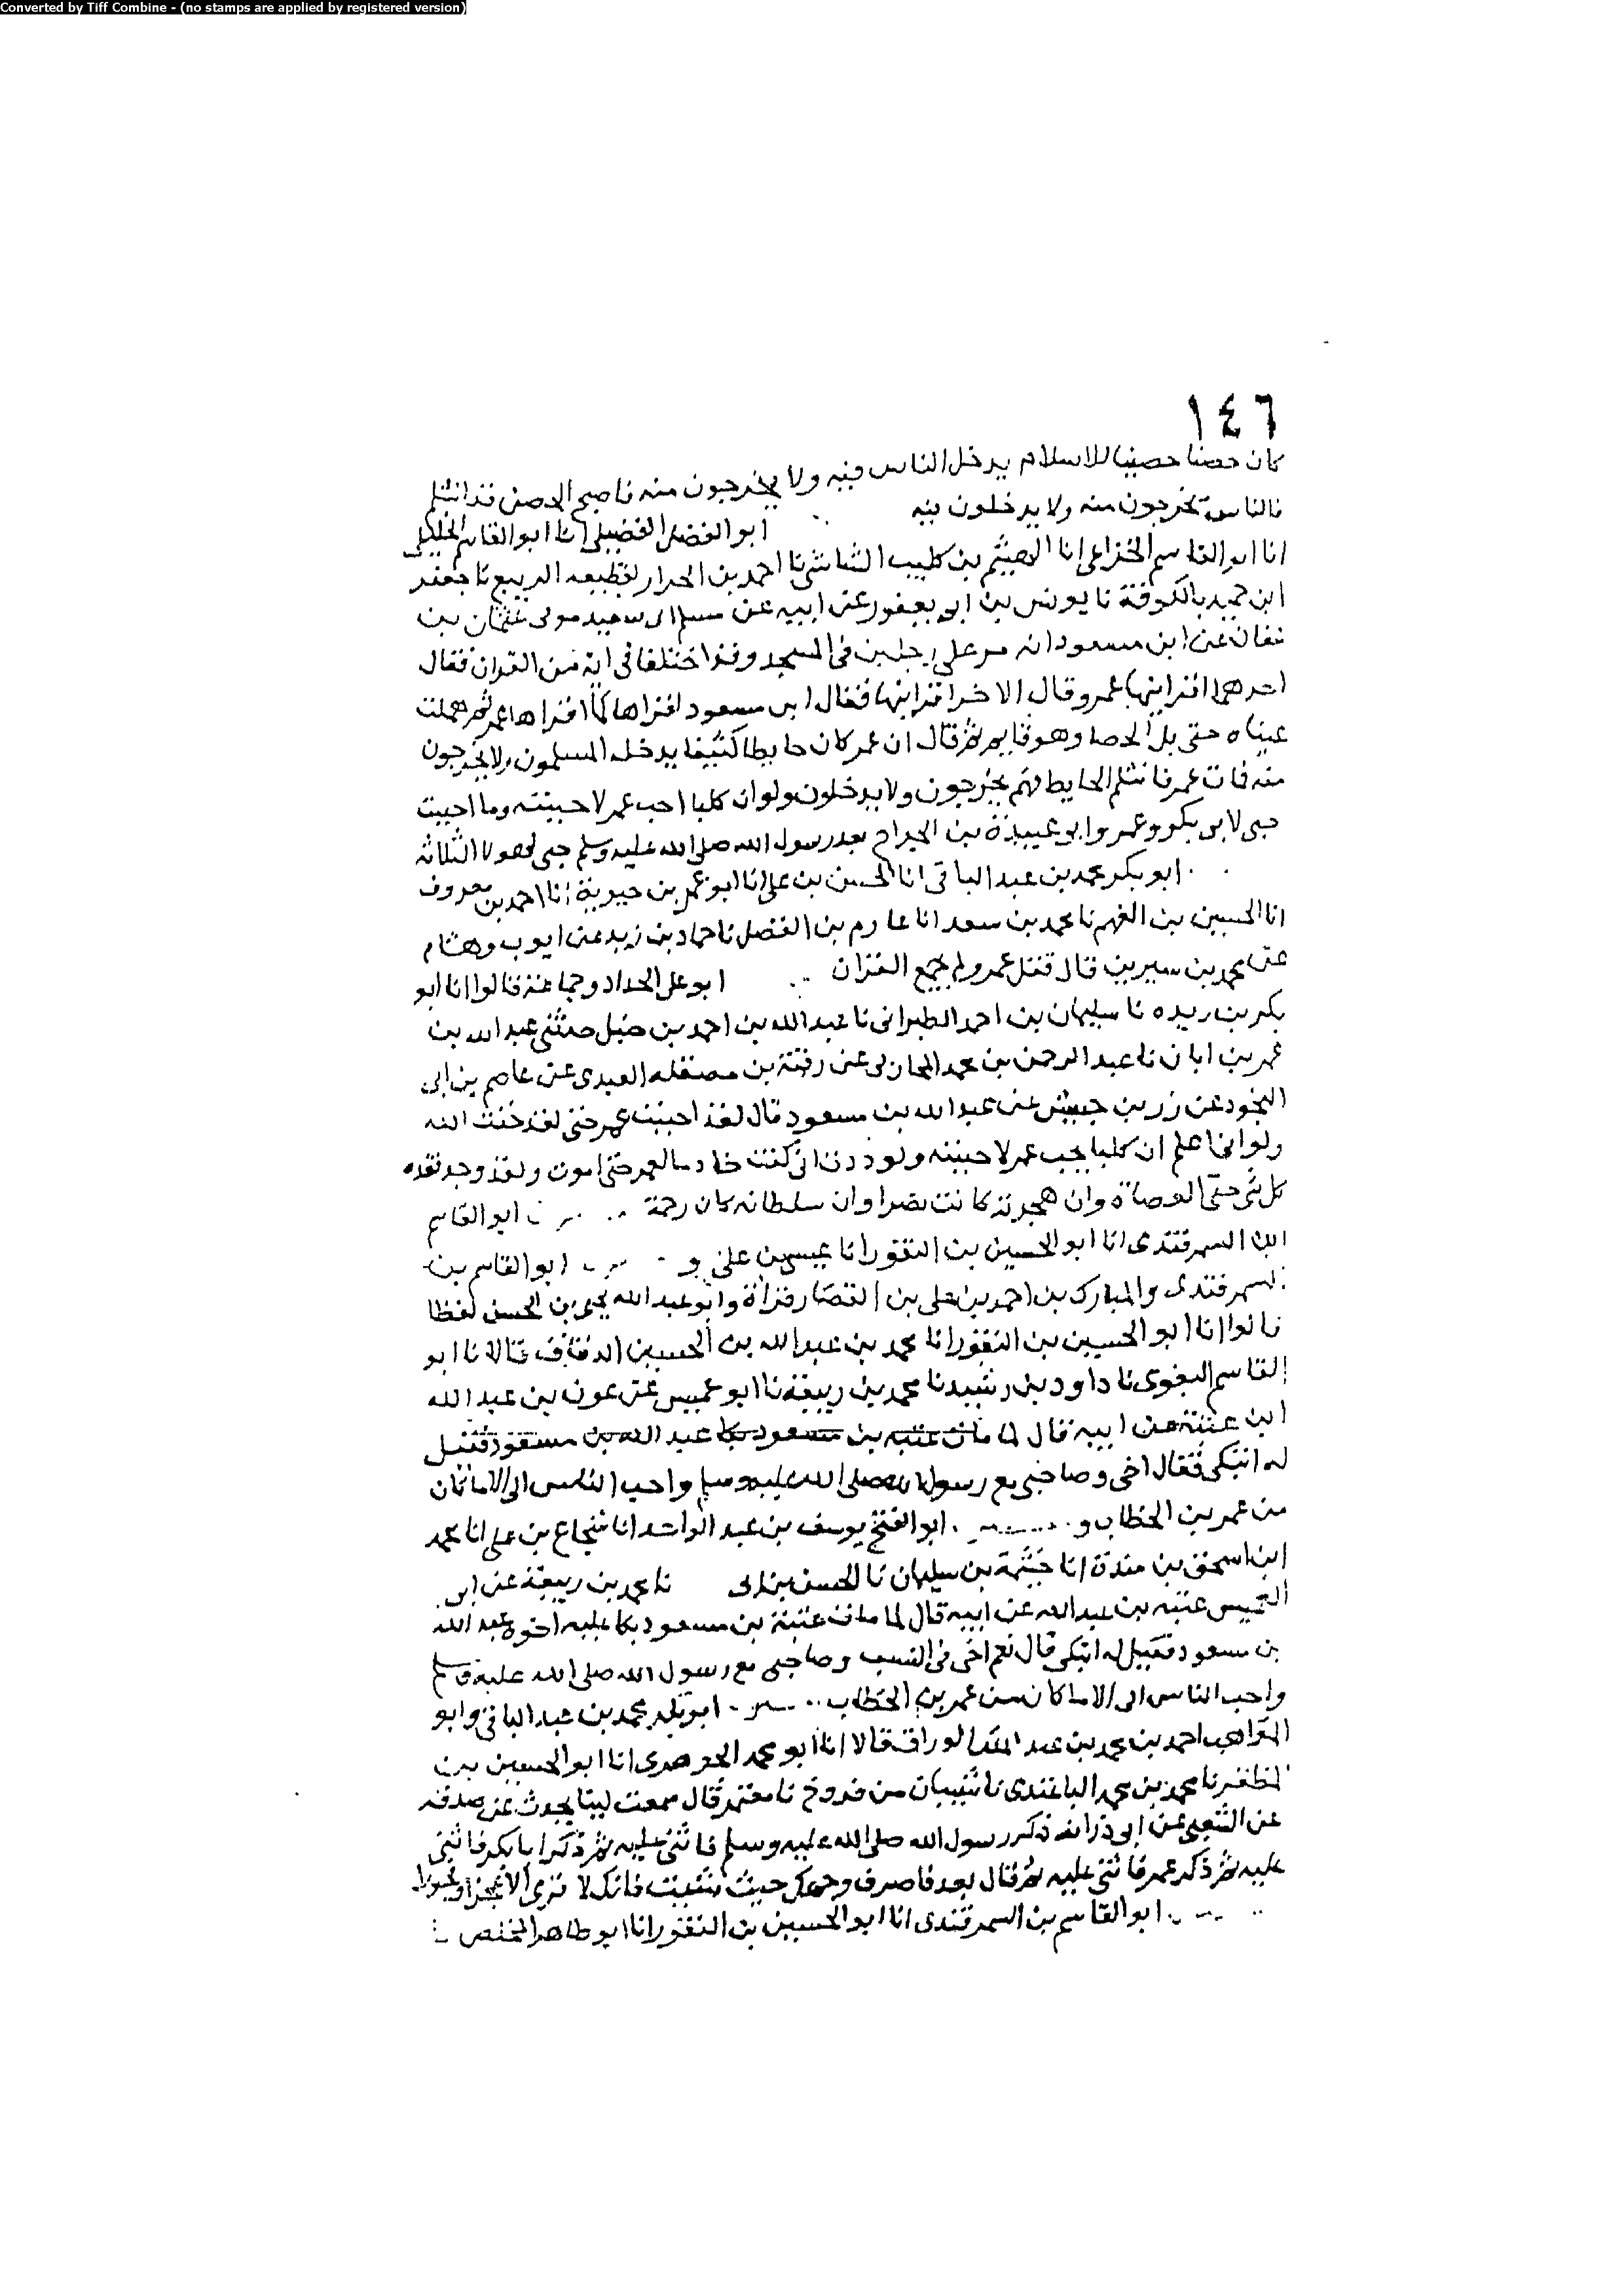 Converted by Tiff Combine - (no stamps are applied by registered version)
١٤٦
كان حصنا حصينا للاسلام يدخل الناس فيه ولا يخرجون منه فاصبح الحصن قد انثلم
فالناس يخرجون منه ولا يدخلون فيه ابو الفضل الفضيلي انا ابو القاسم الخليلي
انا ابو القاسم الخزاعي انا الهيثم بن كليب الشاشي نا احمد بن الحرار بقطيعه الربيع نا جعفر
ابن حميد بالكوفة نا يونس بن ابي يعفور عن ابيه عن مسلم ابي سعيد مولى عثمان بن
عفان عن ابن مسعود انه مر على رجلين في المسجد وقد اختلفا في اية من القران فقال
احدهما اقرانيها عمر وقال الاخر اقرانيها فقال ابن مسعود اقراها كما اقراها عمر ثم هملت
عيناه حتى بل الحصا وهو قايم ثم قال ان عمر كان حايطا كثيفا يدخله المسلمون ولا يخرجون
منه فمات عمر فانثلم الحايط فهم يخرجون ولا يدخلون ولو ان كلبا احب عمر لاحببته وما احببت
حبي لابي بكر وعمر وابي عبيدة بن الجراح بعد رسول الله صلى الله عليه وسلم حبي لهولا الثلاثه
ابو بكر محمد بن عبد الباقي انا الحسن بن علي انا ابو عمر بن حيوية انا احمد بن معروف
انا الحسين بن الفهم نا محمد بن سعد انا عارم بن الفضل نا حماد بن زيد عن ايوب وهشام
عن محمد بن سيرين قال قتل عمر ولم يجمع القران ابو علي الحداد وجماعة قالوا انا ابو
بكر بن ريده نا سليمان بن احمد الطبراني نا عبد الله بن احمد بن حنبل حدثني عبد الله بن
عمر بن ابان نا عبد الرحمن بن محمد المحاربي عن رقبة بن مصقله العبدي عن عاصم بن ابي
النجود عن زر بن حبيش عن عبد الله بن مسعود قال لقد احببت عمر حتى لقد خفت الله
ولو اني اعلم ان كلبا يحب عمر لاحببته ولوددت اني كنت خادما لعمر حتى اموت ولقد وجد فقده
كل شي حتى العضاة وان هجرته كانت نصرا وان سلطانه كان رحمة ابو القاسم
ابن السمرقندي انا ابو الحسين بن النقور انا عيسى بن علي و ابو القاسم بن
السمرقندي والمبارك بن احمد بن علي بن القصار قراة وابو عبد الله يحيى بن الحسن لفظا
قالوا انا ابو الحسين بن النقور انا محمد بن عبد الله بن الحسين الدقاق قالا نا ابو
القاسم البغوي نا داود بن رشيد نا محمد بن ربيعة نا ابو عميس عن عون بن عبد الله
ابن عتبة عن ابيه قال لما مات عتبه بن مسعود بكا عبد الله بن مسعود فقيل
له اتبكي فقال اخي وصاحبي مع رسول الله صلى الله عليه وسلم واحب الناس الي الا ما كان
من عمر بن الخطاب و ابو الفتح يوسف بن عبد الواحد انا شجاع بن علي انا محمد
ابن اسحق بن مندة انا خيثمة بن سليمان نا الحسن نا محمد بن ربيعة عن ابي
العميس عتبه بن عبد الله عن ابيه قال لما مات عتبة بن مسعود بكا عليه اخوه عبد الله
بن مسعود فقيل له اتبكي قال نعم اخي في النسب وصاحبي مع رسول الله صلى الله عليه وسلم
واحب الناس الي الا ما كان من عمر بن الخطاب ابو بكر محمد بن عبد الباقي وابو
المواهب احمد بن محمد بن عبد الملك الوراق قالا انا ابو محمد الجوهري انا ابو الحسين بن
المظفر نا محمد بن محمد الباغندي نا شيبان بن فروخ نا معتمر قال سمعت ليثا يحدث عن صدقه
عن الشعبي عن ابي ذر انه ذكر رسول الله صلى الله عليه وسلم فاثنى عليه ثم ذكر ابا بكر فاثنى
عليه ثم ذكر عمر فاثنى عليه ثم قال بعد فاصرف وجهك حيث شيت فانك لا ترى الا عجزا وفجورا
ابو القاسم بن السمرقندي انا ابو الحسين بن النقور انا ابو طاهر المخلص